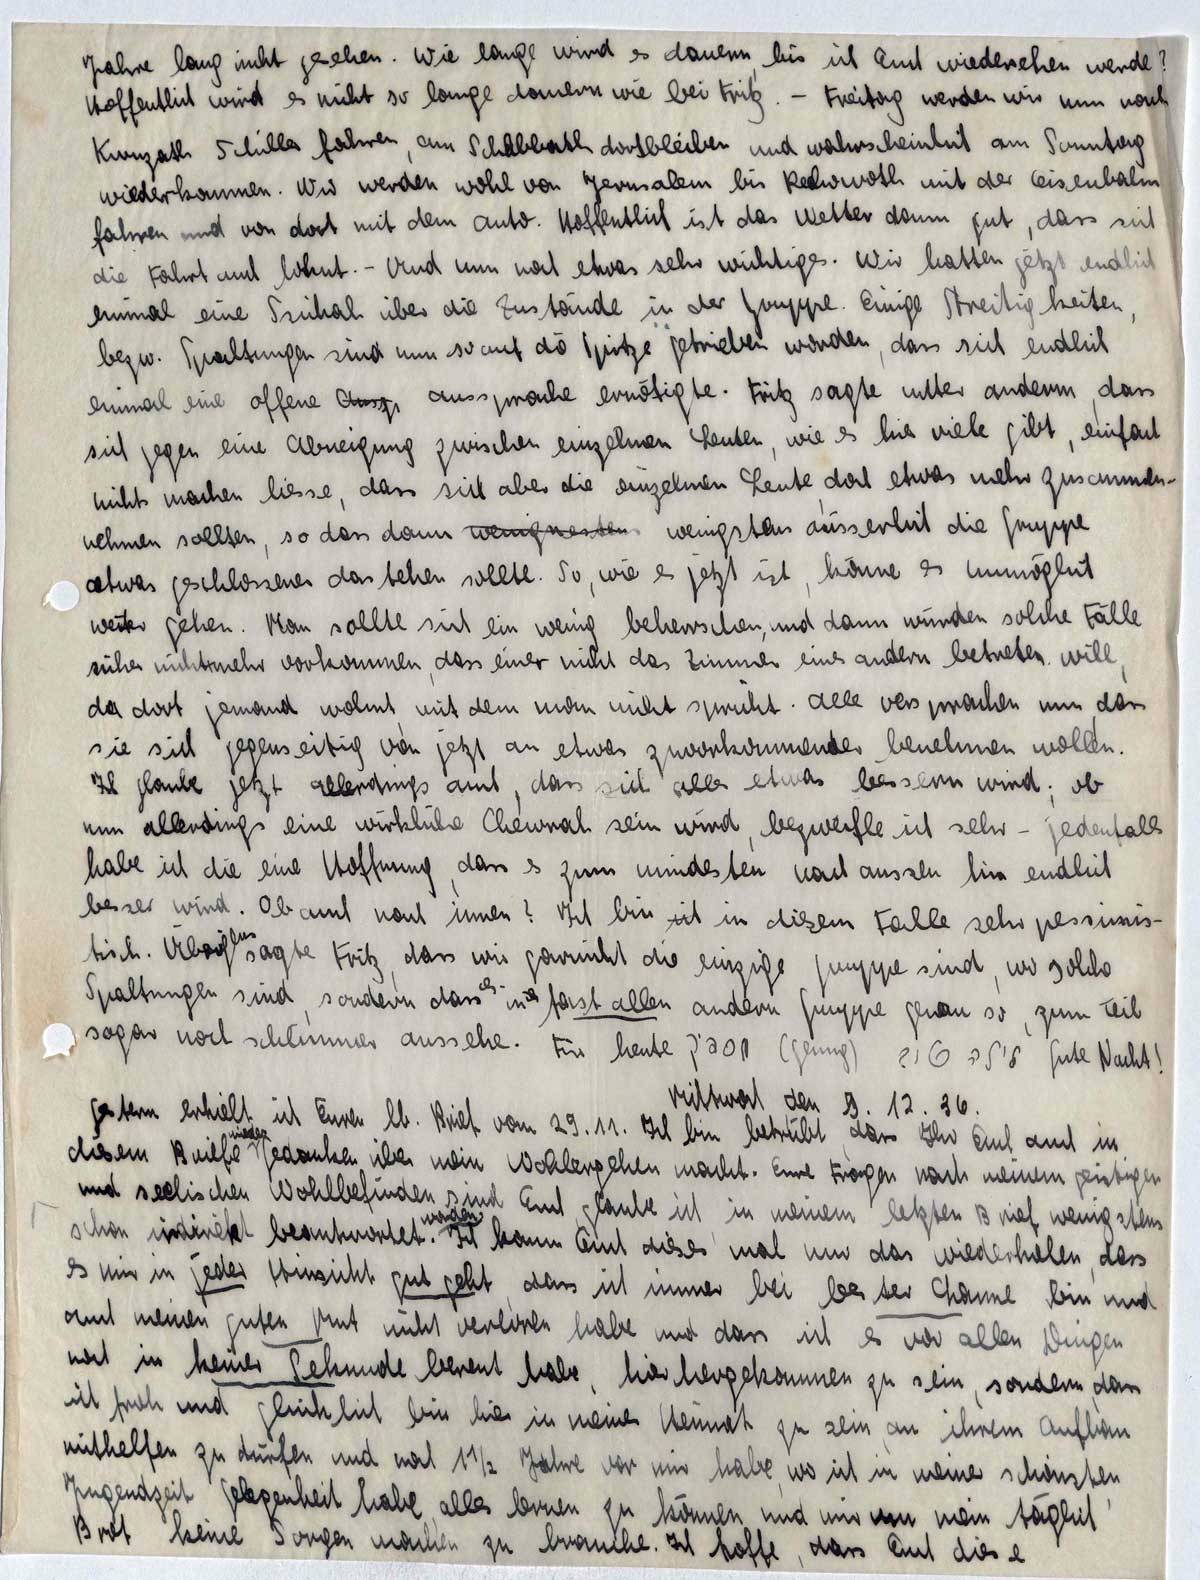 Jahre lang nicht gesehen. Wie lange wird es dauern, bis ich Euch wiedersehen werde?
Hoffentlich wird es nicht so lange dauern wie bei Fritz. – Freitag werden wir nun nach
Schiller fahren, am Schabbath dortbleiben und wahrscheinlich am Sonntag
wiederkommen. Wir werden wohl von Jerusalem bis Rechowoth mit der Eisenbahn
fahren und von dort mit dem Auto. Hoffentlich ist das Wetter dann gut, dass sich
die Fahrt auch lohnt. – Und nun noch etwas sehr wichtiges. Wir hatten jetzt endlich
einmal eine Szichah über die Zustände in der Gruppe. Einige Streitigkeiten,
bezw. Spaltungen sind nun so auf die Spitze getrieben worden, dass sich endlich
einmal eine offene Aussprache ernötigte. Fritz sagte unter anderm, dass
sich gegen eine Abneigung zwischen einzelnen Leuten, wie es hier viele gibt, einfach
nichts machen liesse, dass sich aber die einzelnen Leute doch etwas mehr zusammen-
nehmen sollten, so dass dann wenigstens äusserlich die Gruppe
etwas geschlossener dastehen sollte. So, wie es jetzt ist, könne es unmöglich
weiter gehen. Man sollte sich ein wenig beherrschen, und dann würden solche Fälle
sicher nichtmehr vorkommen, dass einer nicht das Zimmer eines andern betreten will,
da dort jemand wohnt, mit dem man nicht spricht. Alle versprachen nun, dass
sie sich gegenseitig von jetzt an etwas zuvorkommender benehmen wollen.
Ich glaube jetzt allerdings auch, dass sich alles etwas bessern wird; ob
nun allerdings eine wirkliche Chewrah sein wird, bezweifle ich sehr – jedenfalls
habe ich die eine Hoffnung, dass es zum mindesten nach aussen hin endlich
besser wird. Ob auch nach innen? Ich bin in diesem Falle sehr pessimis-
tisch. Übrigens sagte Fritz, dass wir garnicht die einzige Gruppe sind, wo solche
Spaltungen sind, sondern dass es in fast allen andern Gruppe genau so, zum Teil
sogar noch schlimmer aussehe. Für heute מספיק (genug) לילה טוב Gute Nacht!
Mittwoch den 9.12.36.
Gestern erhielt ich Euren lb. Brief vom 29.11. Ich bin betrübt, dass Ihr Euch auch in
diesem Briefe wieder Gedanken über mein Wohlergehen macht. Eure Fragen nach meinem geistigen
und seelischen Wohlbefinden sind Euch glaube ich in meinem letzten Brief wenigstens
schon indirekt beantwortet worden. Ich kann Euch dieses mal nur das wiederholen, dass
es mir in jeder Hinsicht gut geht, dass ich immer bei bester Laune bin und
auch meinen guten Mut nicht verloren habe und dass ich es vor allen Dingen
noch in keiner Sekunde bereut habe, hierhergekommen zu sein, sondern, dass
ich froh und glücklich bin hier in meiner Heimat zu sein, an ihrem Aufbau
mithelfen zu dürfen und noch 1 1/2 Jahre vor mir habe, wo ich in meiner schönsten
Jugendzeit Gelegenheit habe, alles lernen zu können und mir um mein täglich
Brot keine Sorgen machen zu brauche. Ich hoffe, dass Euch diese